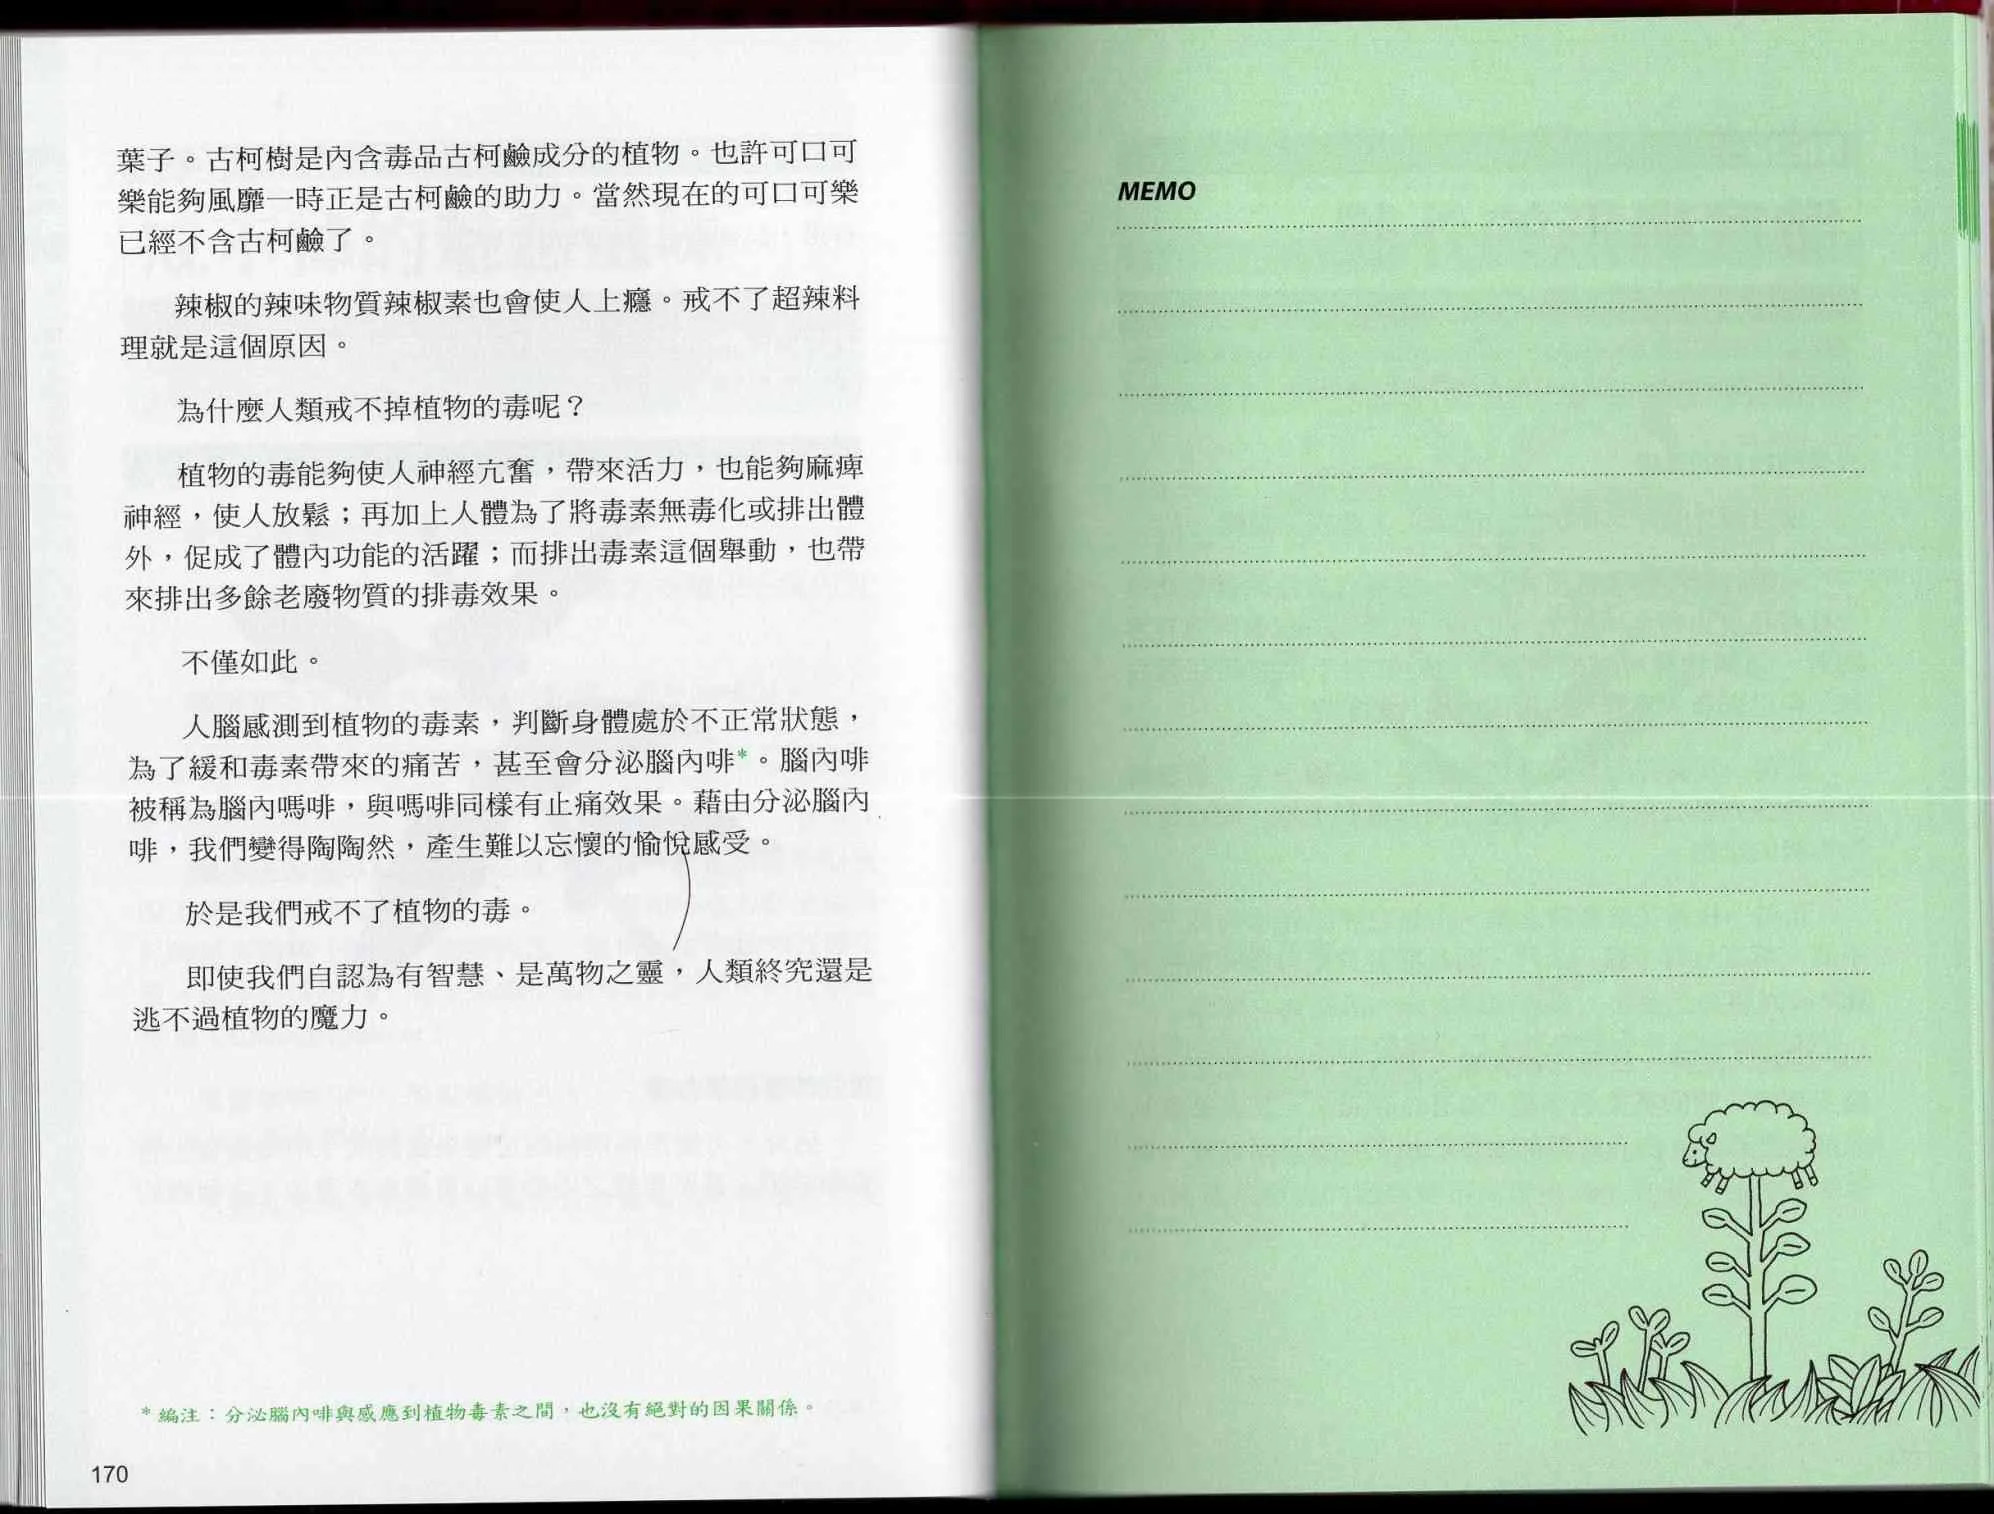 葉子。古柯樹是內含毒品古柯鹼成分的植物。也許可口可
樂能夠風靡一時正是古柯鹼的助力。當然現在的可口可樂
已經不含古柯鹼了。
辣椒的辣味物質辣椒素也會使人上癮。戒不了超辣料
理就是這個原因。
為什麼人類戒不掉植物的毒呢？
植物的毒能夠使人神經亢奮，帶來活力，也能夠麻痺
神經，使人放鬆；再加上人體為了將毒素無毒化或排出體
外，促成了體內功能的活躍；而排出毒素這個舉動，也帶
來排出多餘老廢物質的排毒效果。
不僅如此。
人腦感測到植物的毒素，判斷身體處於不正常狀態，
為了緩和毒素帶來的痛苦，甚至會分泌腦內啡*。腦內啡
被稱為腦內嗎啡，與嗎啡同樣有止痛效果。藉由分泌腦內
啡，我們變得陶陶然，產生難以忘懷的愉悅感受。
於是我們戒不了植物的毒。
即使我們自認為有智慧、是萬物之靈，人類終究還是
逃不過植物的魔力。
*編注：分泌腦內啡與感應到植物毒素之間，也沒有絕對的因果關係。
170
MEMO